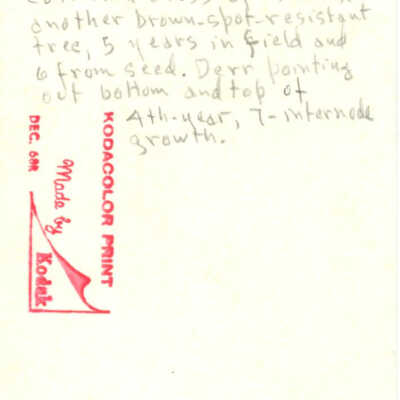 another brown-spot-resistant
tree, 5 years in field and
6 from seed. Derr pointing
out bottom and top of
4th-year, 7-internode
growth.
KODACOLOR PRINT
Made by
Kodak
DEC. 60R